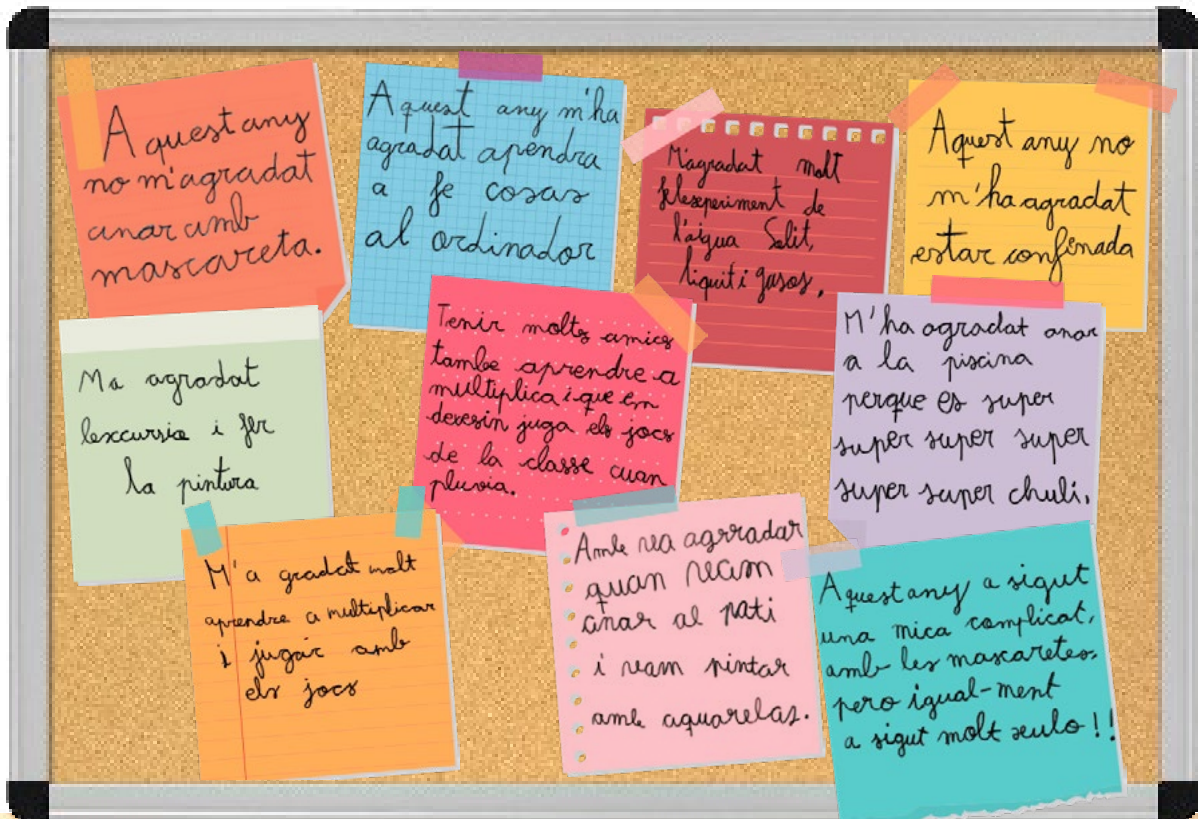 A quest any
no m'agradat
anar amb
mascareta.
A quest any m'ha
agradat apendra
a fe cosas
al ordinador
M'agradat molt
felexperiment de
l'aigua Solit,
liquit i gasos.
Aquest any no
m'ha agradat
estar confinada
Ma agradat
lexcursio i fer
la pintura
Tenir molts amics
tambe aprendre a
multiplica i que em
devesin juga els jocs
de la classe cuan
pluvia.
M'ha agradat anar
a la piscina
perque es super
super super super
super super chuli.
M'a gradat molt
aprendre a multiplicar
i jugar amb
els jocs
Amb va agrradar
quan vam
anar al pati
i vam pintar
amb aquarelas.
A quest any a sigut
una mica complicat,
amb les mascaretes,
pero igual-ment
a sigut molt xulo!!